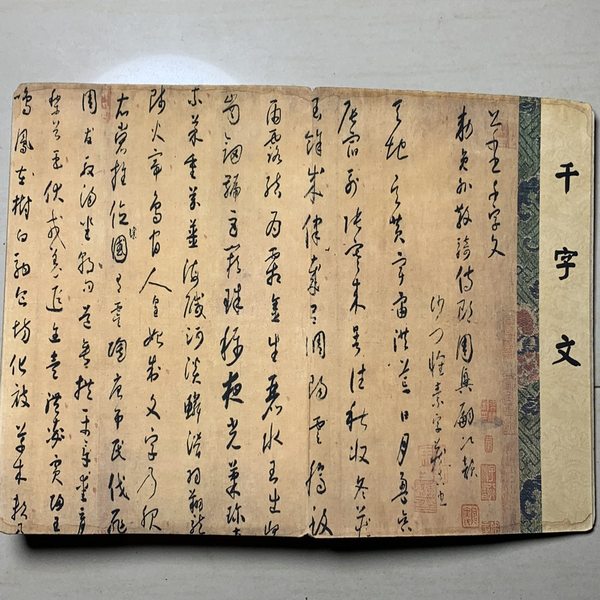 千字文
千字文
勅員外散騎侍郎周興嗣次韻
沙門懷素字藏真
天地玄黃宇宙洪荒日月盈昃
辰宿列張寒來暑往秋收冬藏
閏餘成調陽雲騰致
雨露結為霜金生麗水玉出崑
崗劍號巨闕珠稱夜光菓珍李
柰菜重芥薑海鹹河淡鱗潛羽翔龍
師火帝鳥官人皇始制文字乃服
衣裳推位讓國有虞陶唐弔民伐罪
周發殷湯坐朝問道垂拱平章愛育
黎首臣伏戎羌遐邇壹體率賓歸王
鳴鳳在樹白駒食場化被草木賴及